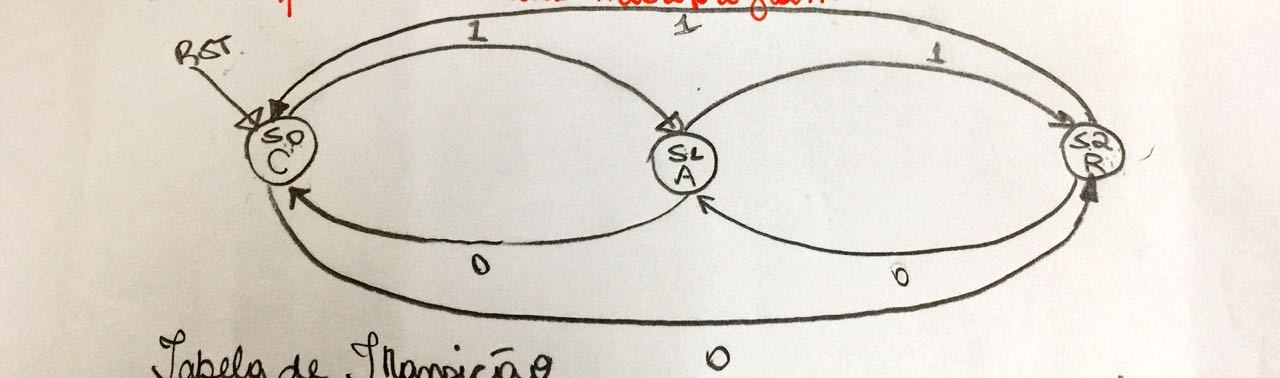 1
1
RST.
1
S0
C
S1
A
S2
R
0
0
0
Tabela de Transição